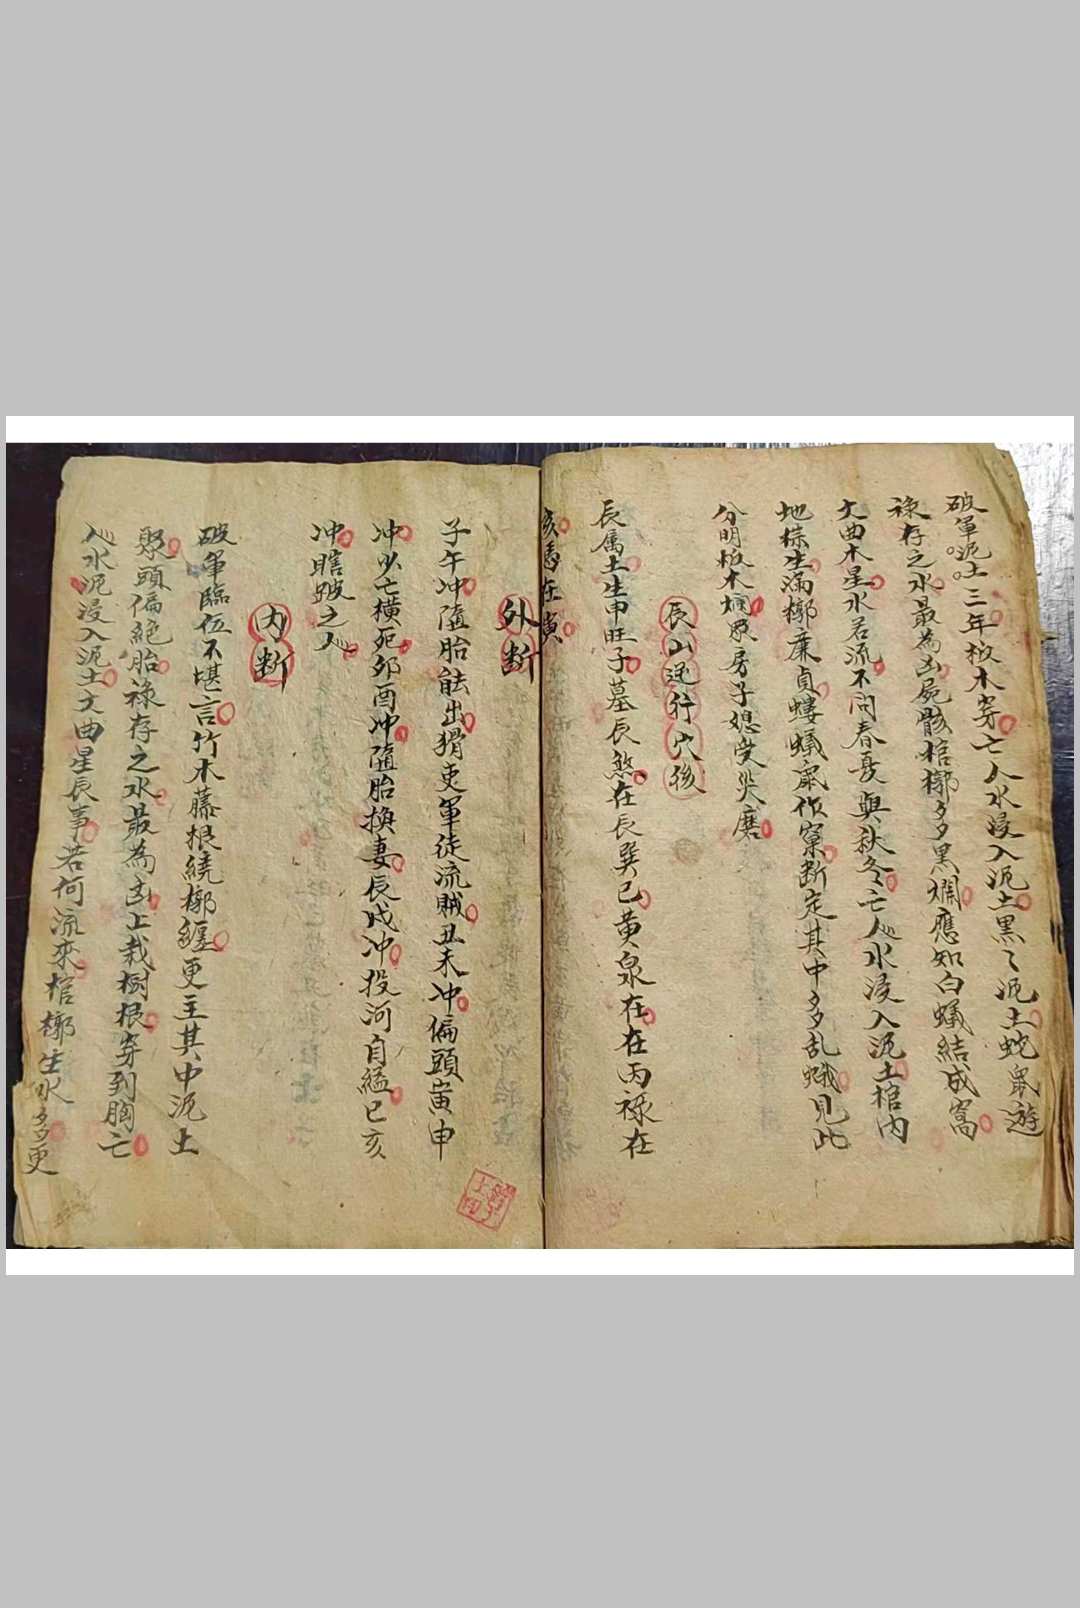 破軍泥土三年板木穿亡人水浸入泥土黑々泥土蛇鼠遊
祿存之水最為凶屍骸棺槨多黑爛應知白蟻結成窩
文曲木星水若流不問春夏與秋冬亡人水浸入泥土棺內
地樣生滿槨廉貞螻蟻鼠作窠斷定其中多乱蟻見此
分明板木爛眾房子媳受災磨
辰山逆行穴後
辰属土生申旺子墓辰煞在辰巽巳黄泉在在丙祿在
亥馬在寅
外断
子午冲隨胎能出獨吏軍徒流賊丑未冲偏頭寅申
冲以亡橫死卯酉冲隨胎換妻辰戌冲投河自縊巳亥
冲瞎跛之人
内断
破軍臨位不堪言竹木藤根繞槨纏更主其中泥土
眾頭偏絕胎祿存之水最為上栽樹根穿到胸亡
人水泥浸入泥土文曲星辰事若何流來棺槨生水多更